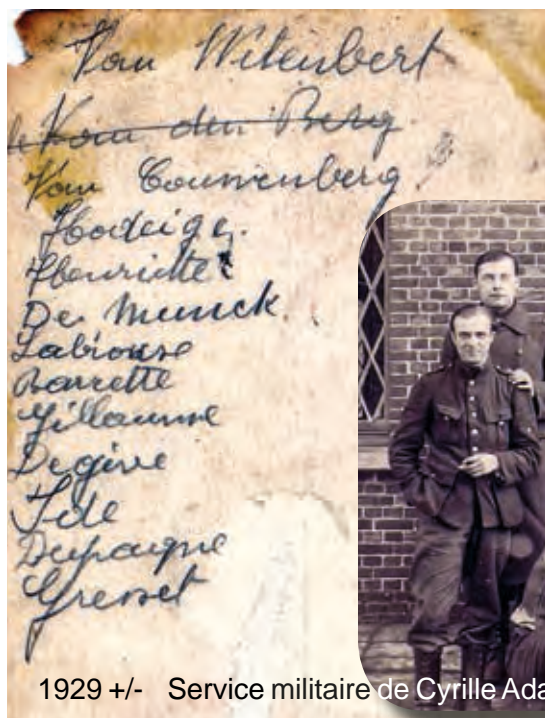 Van Wilenbert
Van den Berg
Van Couwenberg
Hodeige
Henriette
De Munck
Labiouse
Barrette
Gillaume
Degive
Ide
Dupaigne
Gresset
1929 +/- Service militaire de Cyrille Ada